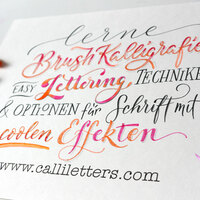 lerne
Brush Kalligrafie
EASY Lettering TECHNIKEN
& OPTIONEN für Schrift mit
coolen Effekten
www.calliletters.com